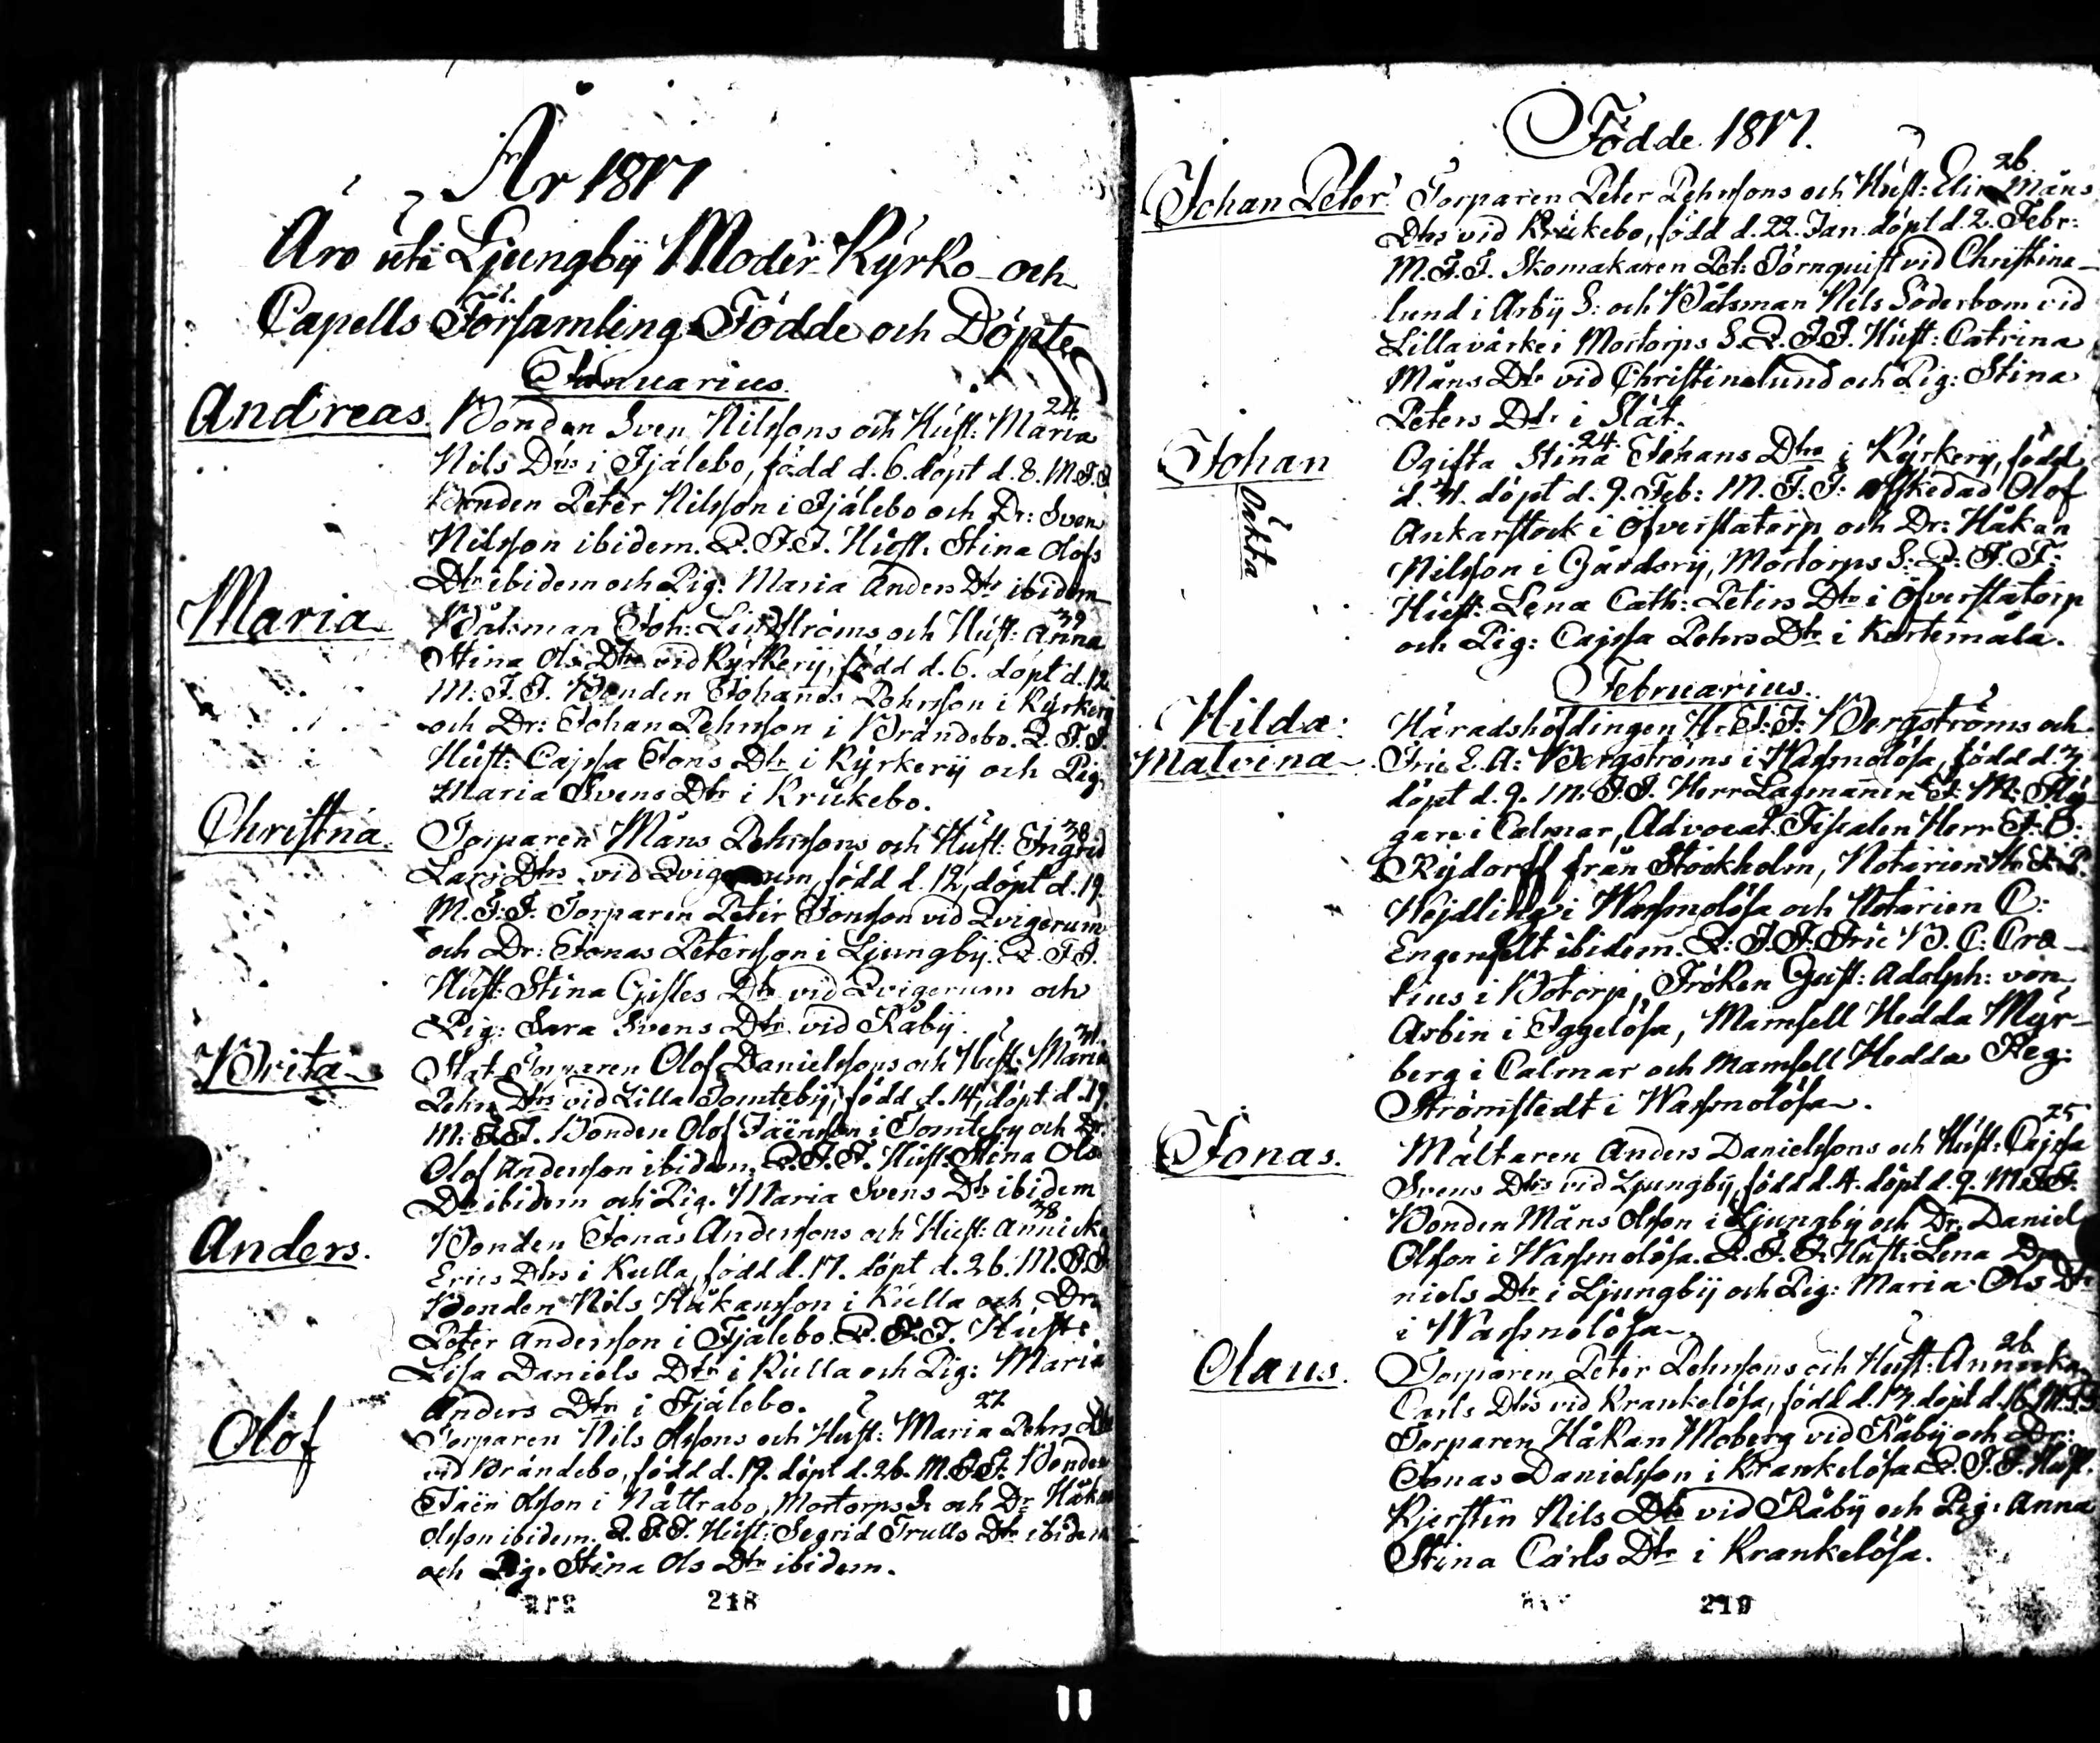 År 1817
Äro uti Ljungbÿ Moder-Kÿrko- och
Capells Församling Födde och Döpte
Januarius.
Andreas. Bonden Sven Nilssons och Hust: Maria 24.
Nils Dtrs i Fjälebo, född d. 6. döpt d. 8. M.F.F.
Bonden Peter Nilsson i Fjälebo och Dr: Sven
Nilsson ibidem. Q.F.F. Hust: Stina Olofs
Dtr ibidem och Pig: Maria Anders Dtr ibidem
Maria Båtsman Joh: Lindströms och Hust: Anna 39
Stina Ols Dtrs vid Kÿrkerÿ, född d. 6. döpt d. 12.
M.F.F. Bonden Johan Pehrsson i Kÿrkerÿ
och Dr: Johan Pehrsson i Brändebo. Q.F.F.
Hust: Cajssa Jons Dtr i Kÿrkerÿ och Pig:
Maria Svens Dtr i Krükebo.
Christina. Torparen Måns Pehrssons och Hust: Ingrid 38
Lars Dtrs vid Qvigerum, född d. 12, döpt d. 19.
M.F.F. Torparen Peter Jonsson vid Qvigerum
och Dr: Jonas Petersson i Ljungbÿ. Q.F.F.
Hust: Stina Gisles Dtr vid Qvigerum och
Pig: Sara Svens Dtr vid Råbÿ.
Brita Stat Torparen Olof Danielssons och Hust: Maria
Pehrs Dtrs vid Lilla Tomtebÿ, född d. 14, döpt d. 19
M.F.F. Bonden Olof Jaënsson i Tomteby och Dr
Olof Andersson ibidem. Q.F.F. Hust: Stina Ols
Dtr ibidem och Pig. Maria Svens Dtr ibidem
Anders. Bonden Jonas Anderssons och Hust: Annicka 38
Erics Dtrs i Kulla, född d. 17. döpt d. 26. M.F.F.
Bonden Nils Håkansson i Kulla och Dr:
Peter Andersson i Fjälebo. Q.F.F. Hust:
Lisa Daniels Dtr i Kulla och Pig: Maria
Anders Dtr i Fjälebo.
Olof Torparen Nils Olssons och Hust: Maria 27 Pehrs Dtrs
vid Brändebo, född d. 19. döpt d. 26. M.F.F. Bonden
Jaën Olsson i Nättrabo, Mortorps S. och Dr Håkan
Olsson ibidem. Q.F.F. Hust: Segrid Trulls Dtr ibidem
och Pig. Stina Ols Dtr ibidem.
218
Födde 1817.
Johan Peter Torparen Peter Pehrssons och Hust: Elin 26 Måns
Dtrs vid Krükebo, född d. 22. Jan. döpt d. 2. Febr:
M.F.F. Skomakaren Pet: Törnquist vid Christina-
lund i Arbÿ S: och Båtsman Nils Söderbom vid
Lillavärke i Mortorps S. Q.F.F. Hust: Catrina
Måns Dtr vid Christinelund och Pig: Stina
Peters Dtr i Slät.
Johan Ogifta Stina 24. Johans Dtrs i Kÿrkerÿ, född
Oäkta d. 31. döpt d. 9. Feb: M.F.F: afskedad Olof
Ankarstock i Öfverstatorp och Dr: Håkan
Nilsson i Gårdsrÿ, Mortorps S: Q.F.F:
Hust: Lena Cath: Peters Dtr i Öfverstatorp
och Pig: Cajssa Pehrs Dtr i Kortemåla.
Februarius.
Hilda Häradshöfdingen H. J:F: Bergströms och
Malvina Fru E.A: Bergströms i Wassmolösa, född d. 3.
döpt d. 9. M.F.F. Herr Lagmannen J: M: Sty-
gare i Calmar, Advocat Fiscalen Herr J: B:
Rÿdorff från Stockholm, Notarien H:
Wejdling i Wassmolösa och Notarien C:
Engenfelt ibidem. Q:F.F: Fru B. C: Cro-
lius i Botorp, Fröken Gust: Adolph: von
Arbin i Iggelösa, Mamsell Hedda Mÿr-
berg i Calmar och Mamsell Hedda Reg:
Strömstedt i Wassmolösa.
Jonas. Mältaren Anders Danielssons och Hust: Cajssa 25
Svens Dtrs vid Ljungbÿ, född d. 4. döpt d. 9. M.F.F.
Bonden Måns Olsson i Ljungbÿ och Dr: Daniel
Olsson i Wassmolösa. Q.F.F: Hust: Lena Da-
niels Dtr i Ljungbÿ och Pig: Maria Ols Dtr
i Wassmolösa.
Olaus. Torparen Peter Pehrssons och Hust: Annicka 26
Carls Dtrs vid Krankelösa, född d. 13. döpt d. 16. M.F.F.
Torparen Håkan Moberg vid Råbÿ och Dr:
Jonas Danielsson i Krankelösa. Q.F.F. Hust.
Kjerstin Nils Dtr vid Råbÿ och Pig: Anna
Stina Carls Dtr i Krankelösa.
219